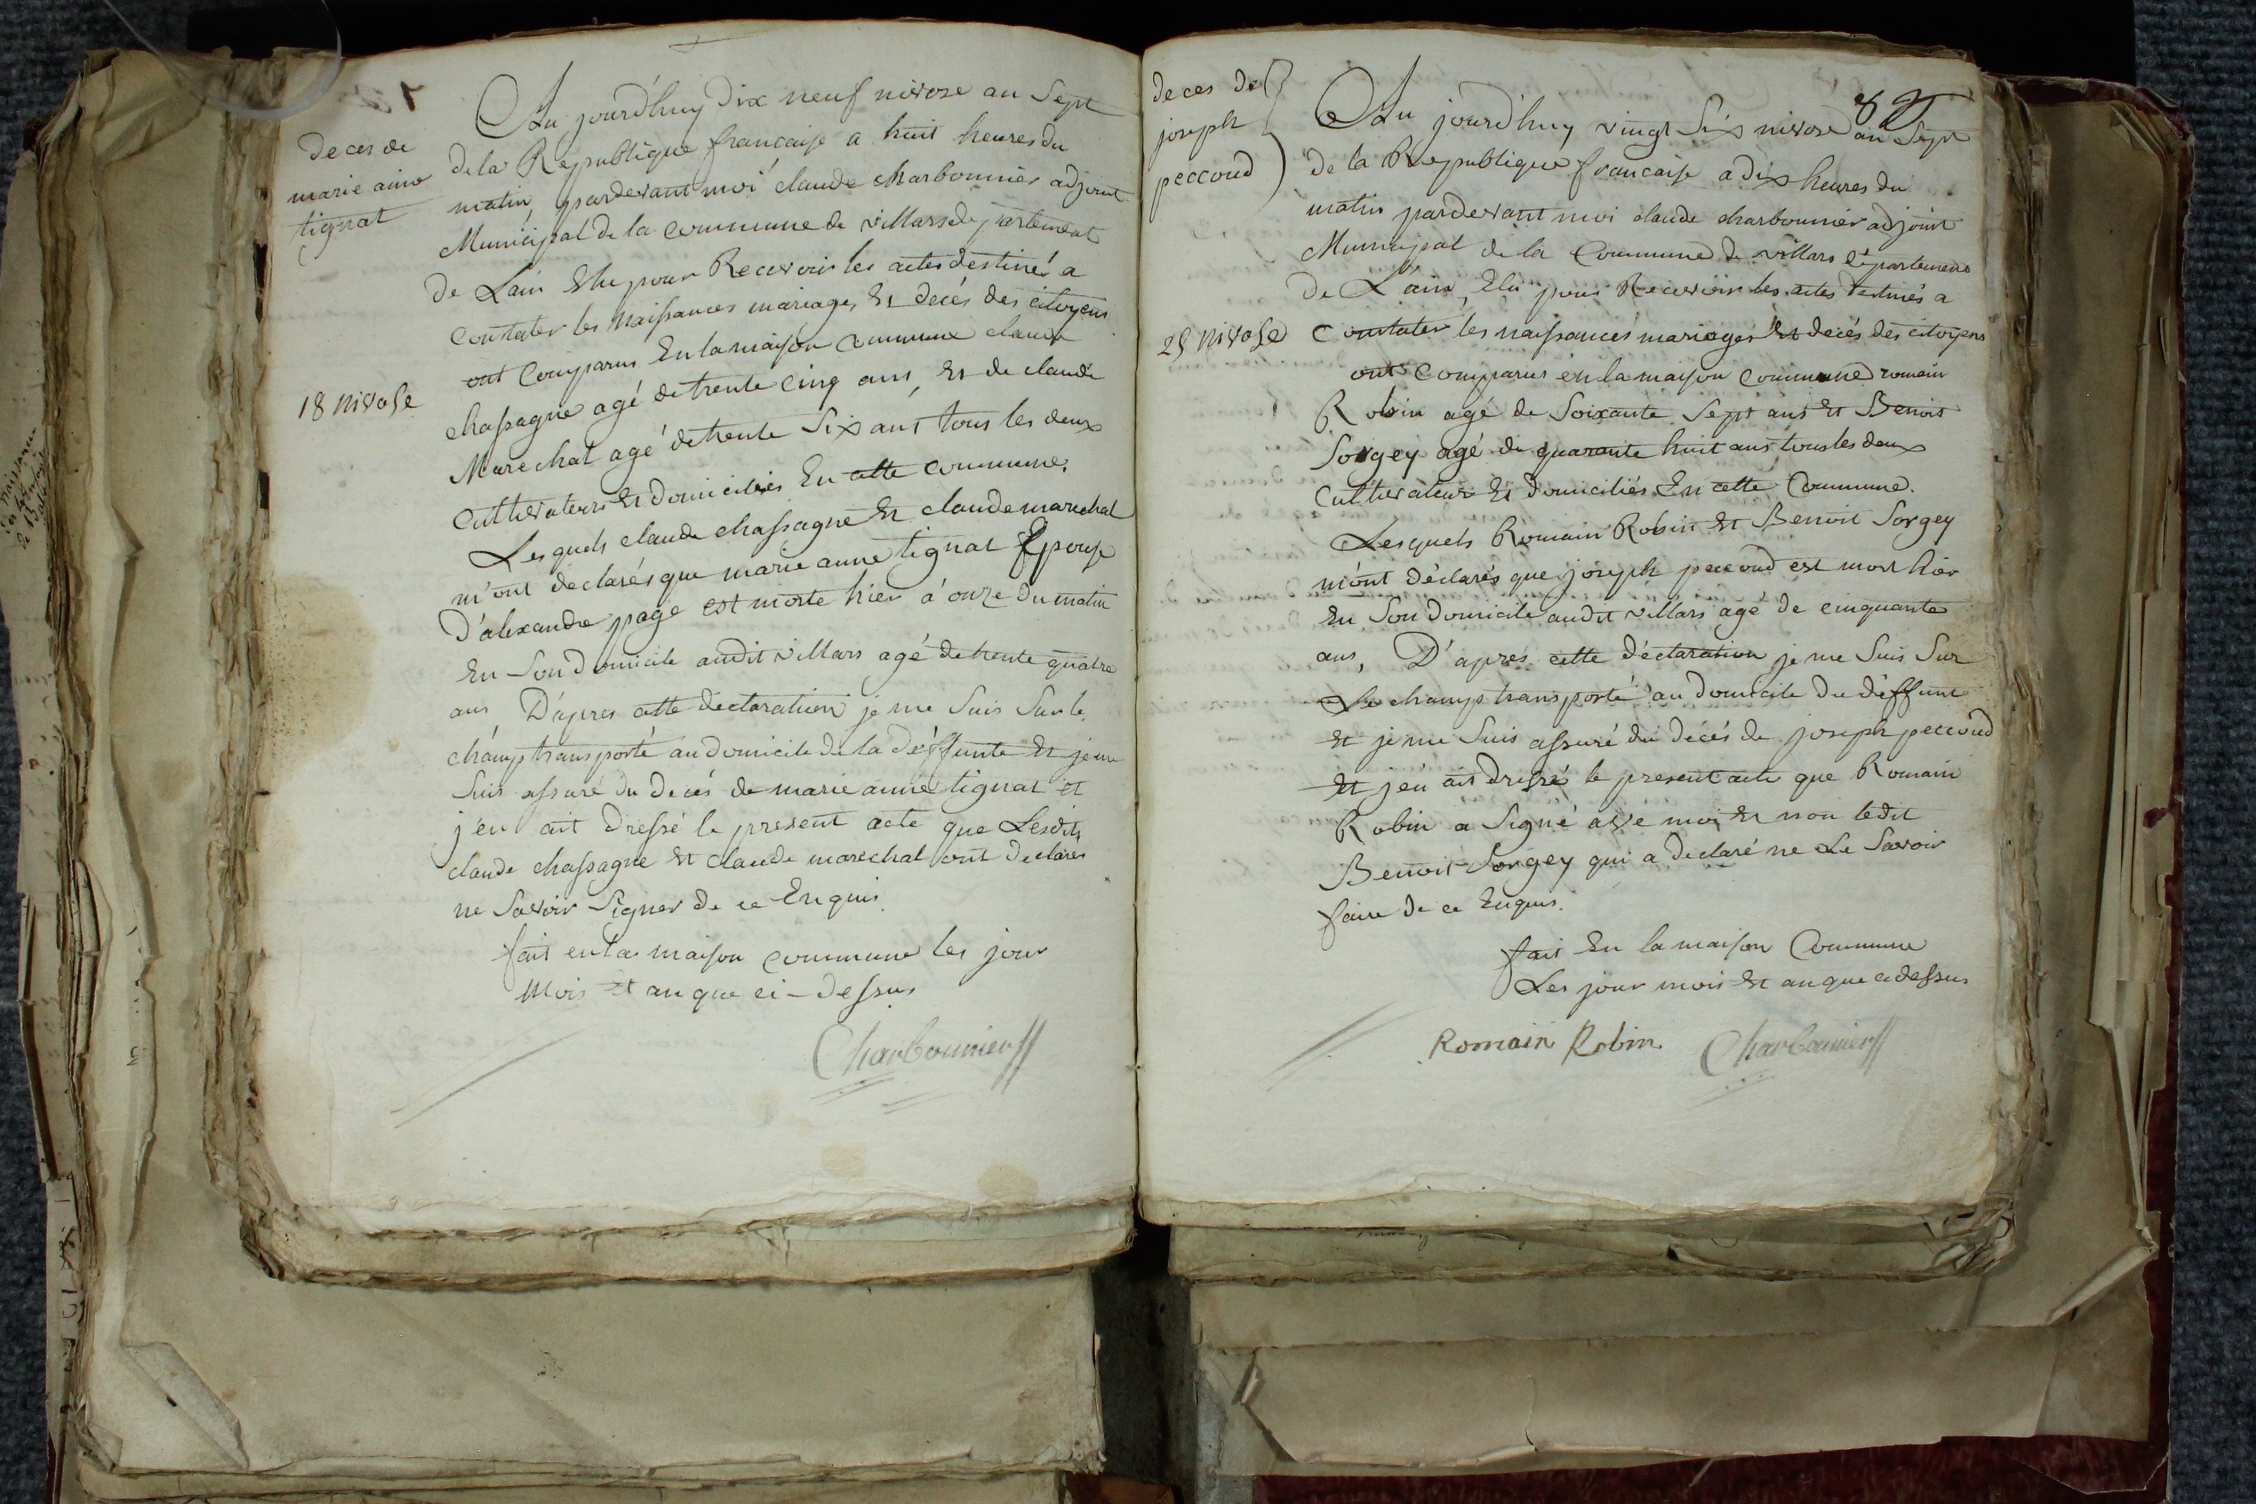 deces de
marie aine
tignat
18 nivose
Au jourd'huy dix neuf nivose an Sept
de la Republique francaise a huit heures du
matin pardevant moi claude charbonnier adjoint
Municipal de la commune de villars departement
de Lain Elu pour Recevoir les actes destinés a
constater les naissances mariages Et decés des citoyens
ont comparus En la maison commune claude
chassagne agé de trente cinq ans, Et de claude
Marechal agé de trente Six ans tous les deux
cultivateurs Et domiciliés En cette commune.
Lesquels claude chassagne Et claude marechal
m'ont declarés que marie anne tignat Epouse
D'alexandre page est morte hier a onze du matin
En Son domicile audit villars agé de trente quatre
ans D'apres cette declaration je me Suis Sur le
champ transporté au domicile de la déffunte Et je me
Suis assuré du decés de marie anne tignat et
j'en ait dressé le present acte que Lesdits
claude chassagne Et claude marechal ont declarés
ne Savoir Signer de ce Enquis.
fait en la maison commune les jour
Mois Et an que ci-dessus
Charbonnier
deces de
joseph
peccoud
25 nivose
82
Au jourd'huy vingt Six nivose an Sept
de la Republique francaise a dix heures du
matin pardevant moi claude charbonnier adjoint
Municipal de la Commune de villars département
de L'ain, Elu pour Recevoir les actes destinés a
Constater les naissances mariages Et decés des citoyens
ont comparus en la maison commune romain
Robin agé de Soixante Sept ans Et Benoit
Sorgey agé de quarante huit ans tous les deux
Cultivateurs Et domiciliés En cette Commune.
Lesquels Romain Robin Et Benoit Sorgey
m'ont déclarés que joseph peccoud est mort hier
En Son domicile audit villars agé de cinquante
ans, D'apres cette déclaration je me Suis Sur
Le champ transporté au domicile du déffunt
Et je me Suis assuré du décés de joseph peccoud
Et j'en ait dressé le present acte que Romain
Robin a Signé avé moi Et non ledit
Benoit Sorgey qui a declaré ne Le Savoir
faire de ce Enquis.
fait En la maison Commune
Les jour mois Et an que ci dessus
Romain Robin Charbonnier